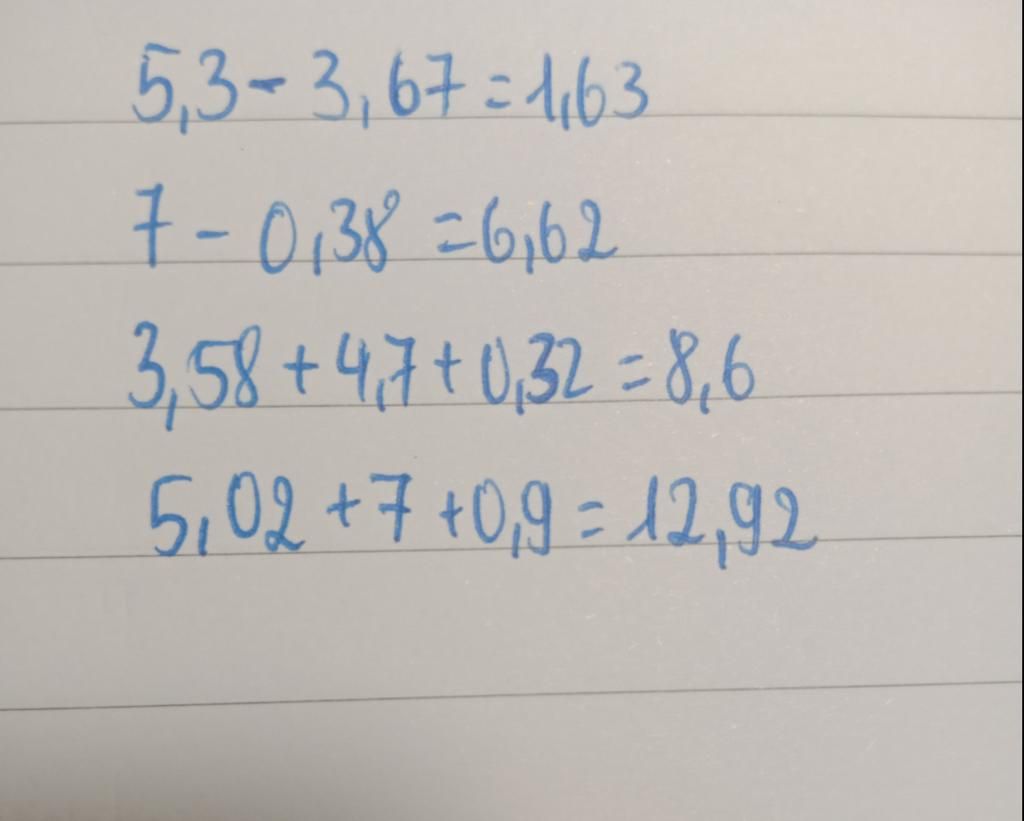 5,3 - 3,67 = 1,63
7 - 0,38 = 6,62
3,58 + 4,7 + 0,32 = 8,6
5,02 + 7 + 0,9 = 12,92